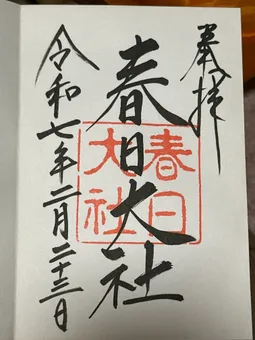 奉拝
春日大社
春日大社
令和七年二月二十三日